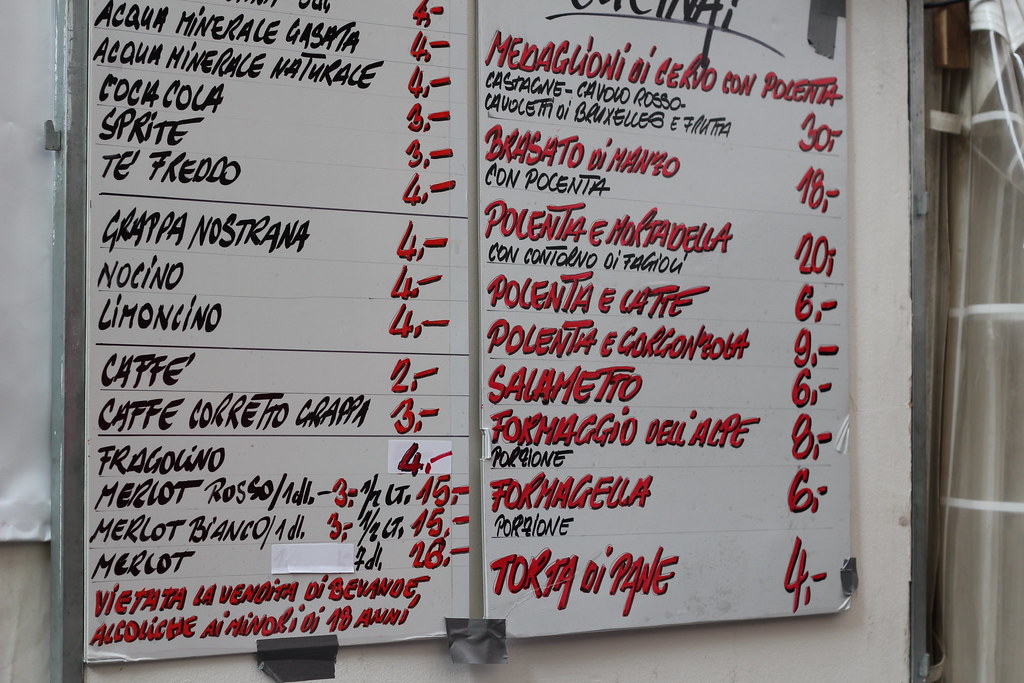 ACQUA MINERALE GASATA 4.-
ACQUA MINERALE NATURALE 4.-
COCA COLA 3.-
SPRITE 3.-
TE' FREDDO 4.-
GRAPPA NOSTRANA 4.-
NOCINO 4.-
LIMONCINO 4.-
CAFFE' 2.-
CAFFE CORRETTO GRAPPA 3.-
FRAGOLINO 4.-
MERLOT ROSSO/1dl. - 3.- 1/2 LT. 15.-
MERLOT BIANCO/1dl. 3.- 1/2 LT. 15.-
MERLOT 7dl. 28.-
VIETATA LA VENDITA DI BEVANDE,
ALCOLICHE AI MINORI DI 18 ANNI,
CUCINA
MEDAGLIONI DI CERVO CON POLENTA
CASTAGNE - CAVOLO ROSSO -
CAVOLETTI DI BRUXELLES E FRUTTA 30.-
BRASATO DI MANZO
CON POLENTA 18.-
POLENTA E MORTADELLA
CON CONTORNO DI FAGIOLI 20.-
POLENTA E LATTE 6.-
POLENTA E GORGONZOLA 9.-
SALAMETTO 6.-
FORMAGGIO DELL'ALPE 8.-
PORZIONE
FORMAGELLA 6.-
PORZIONE
TORTA DI PANE 4.-